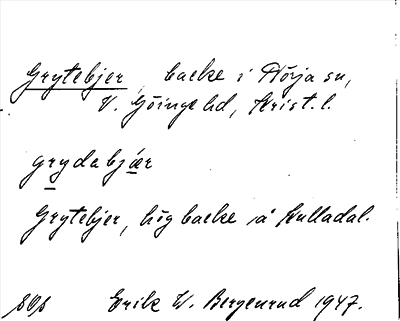 Grytebjer, backe i Nörja sn,
V. Göinge hd, Krist. l.
grydabjær
Grytebjer, hög backe å Kulladal.
Erik W. Bergenrud 1947.